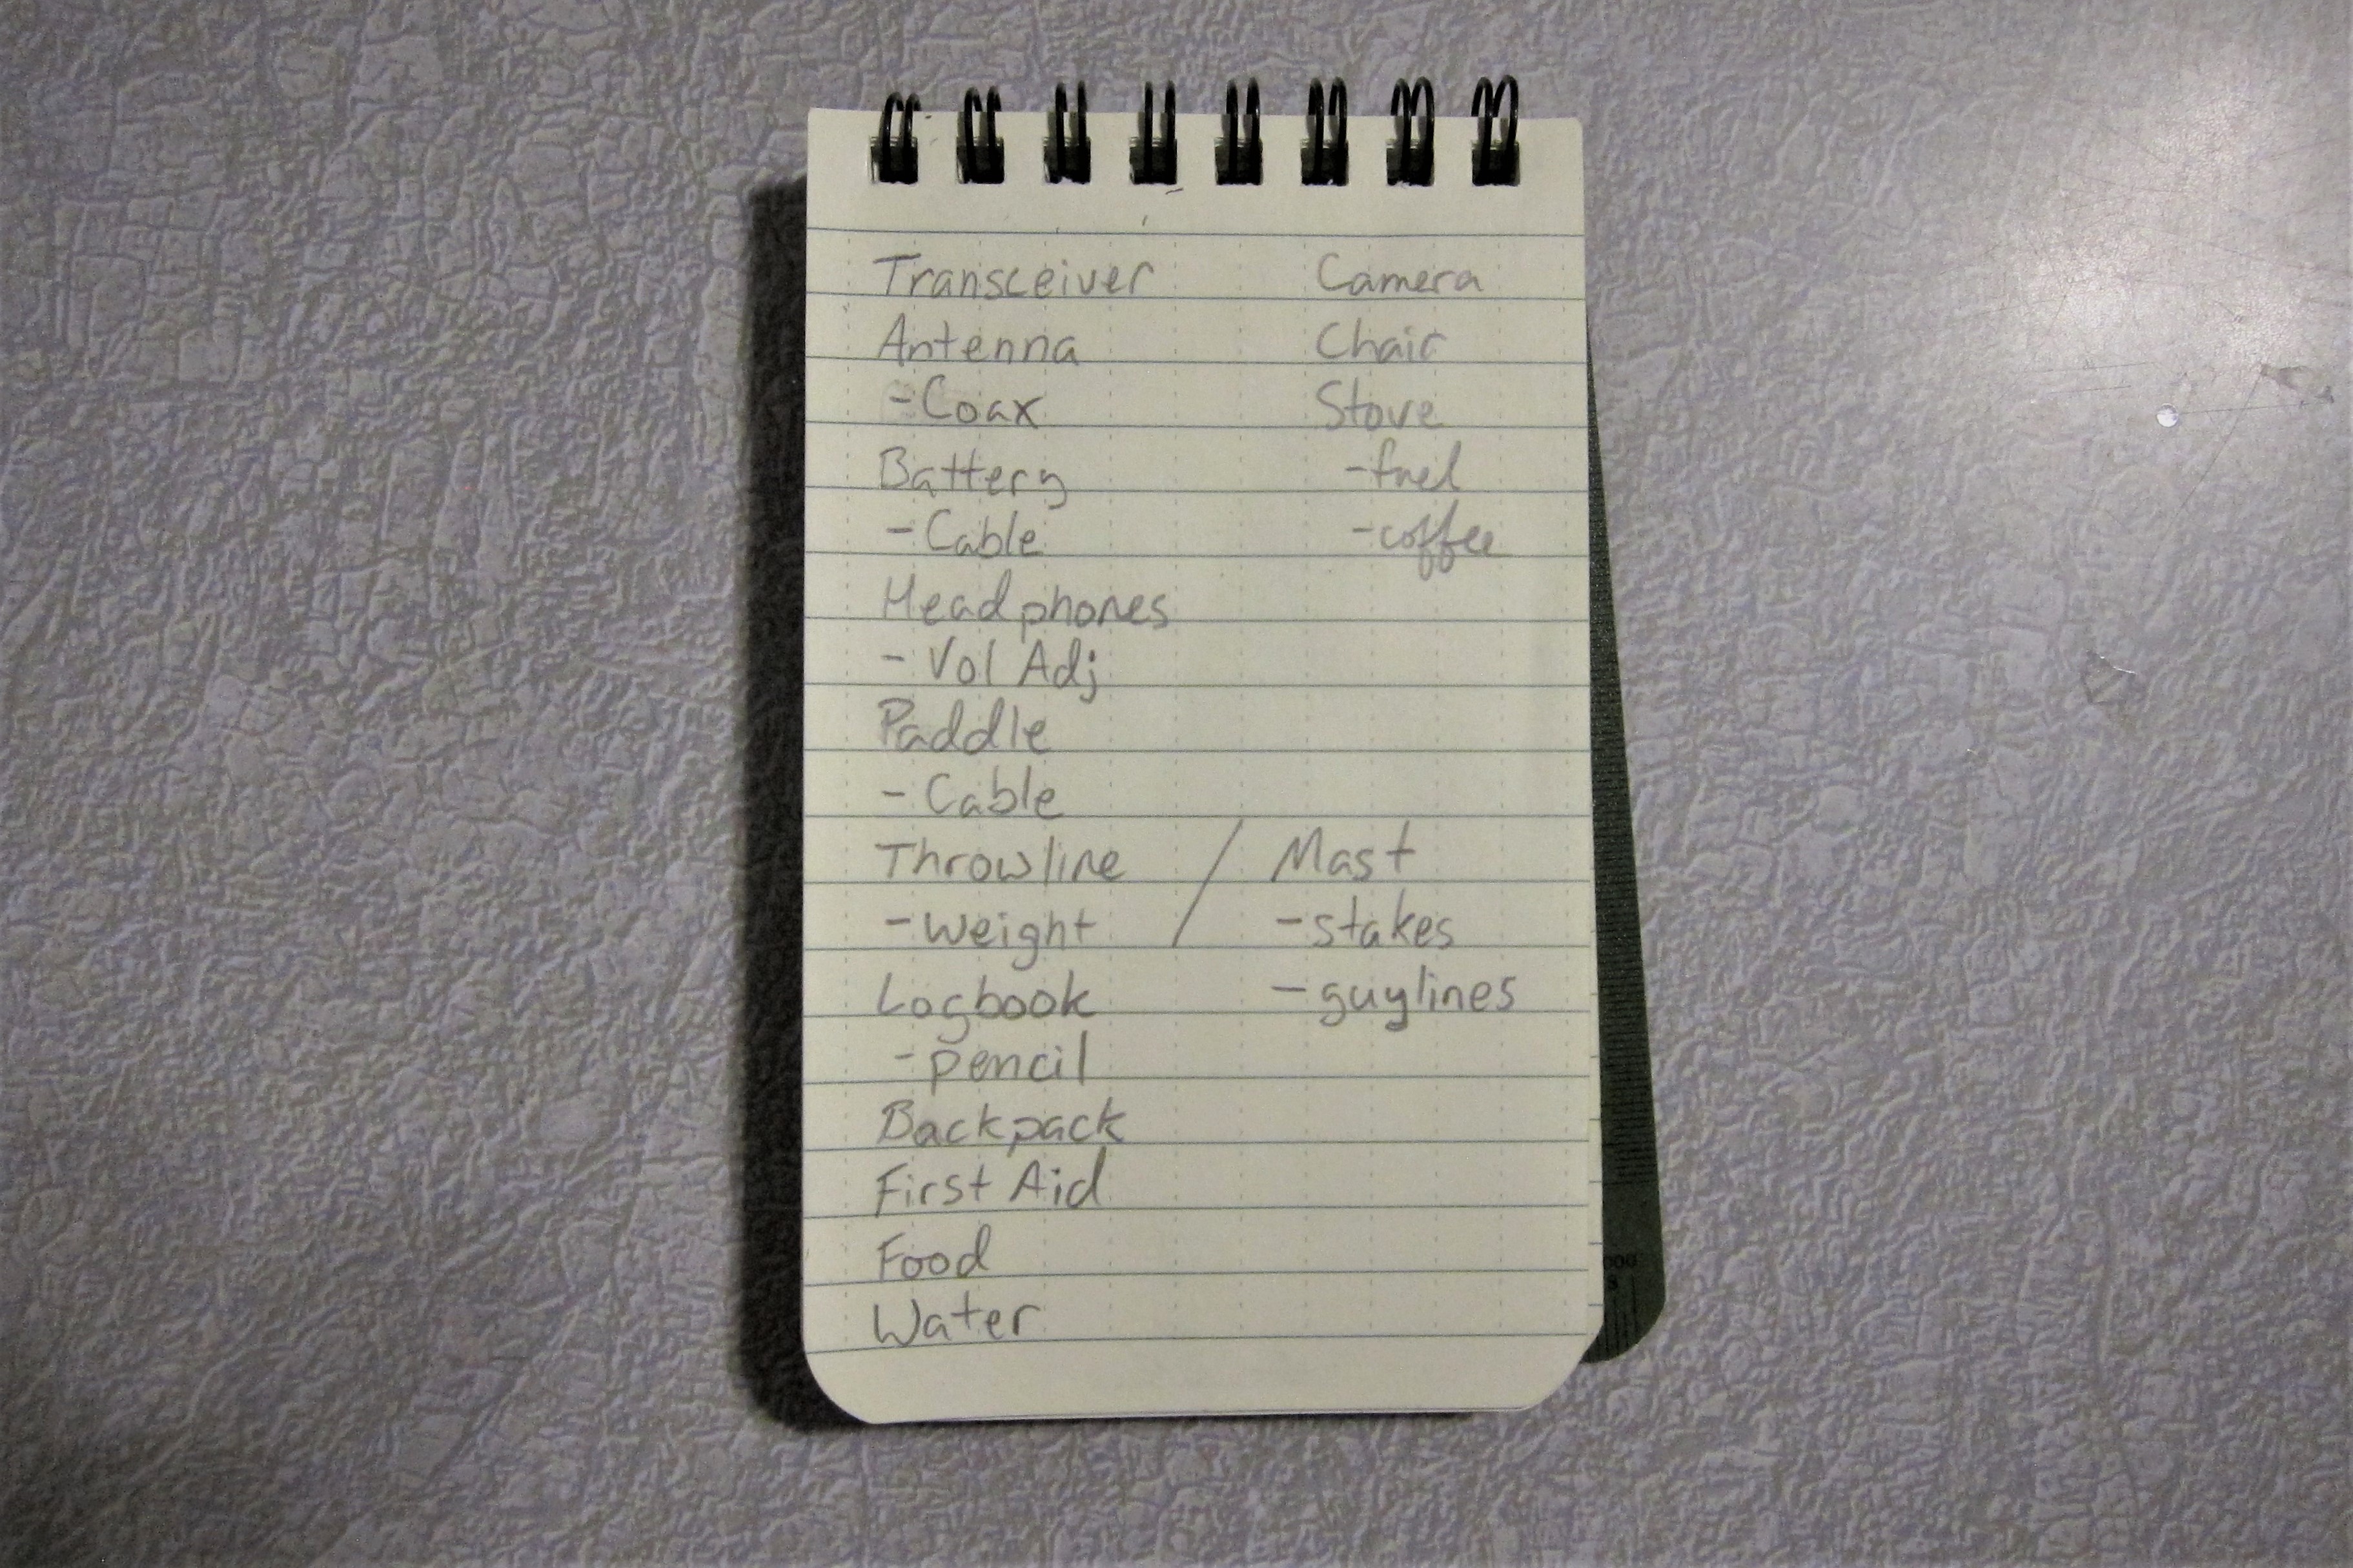 Transceiver
Antenna
- Coax
Battery
- Cable
Headphones
- Vol Adj
Paddle
- Cable
Throwline / Mast
- weight - stakes
Logbook - guylines
- pencil
Backpack
First Aid
Food
Water
Camera
Chair
Stove
- fuel
- coffee